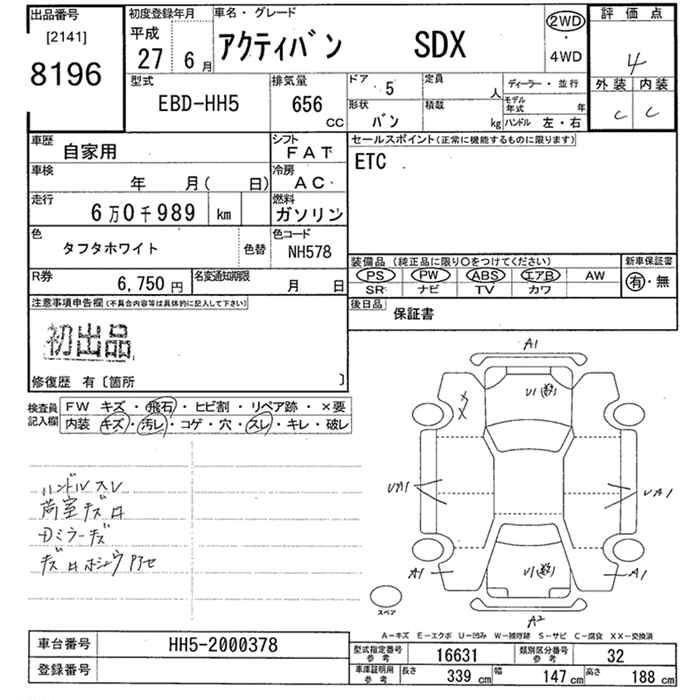 出品番号
[2141]
8196
初度登録年月
平成
27 6月
車名・グレード
アクティバン SDX
2WD
・
4WD
評価点
4
外装 内装
C C
型式
EBD-HH5
排気量
656 CC
ドア 5
形状 バン
定員 人
積載 kg
ディーラー・並行
モデル年式 年
ハンドル 左・右
車歴 自家用
シフト FAT
車検 年 月( 日)
冷房 AC
走行 6万0千989 km
燃料 ガソリン
色 タフタホワイト 色替
色コード NH578
R券 6,750円
名変通知期限 月 日
セールスポイント(正常に機能するものに限ります)
ETC
装備品(純正品に限り○をつけてください)
PS PW ABS エアB AW
SR ナビ TV カワ
新車保証書
有・無
後日品 保証書
注意事項申告欄(不具合内容等は具体的に記入して下さい)
初出品
修復歴 有〔箇所 〕
検査員記入欄
FW キズ・飛石・ヒビ割・リペア跡・×要
内装 キズ・汚レ・コゲ・穴・スレ・キレ・破レ
ハンドルスレ
荷室キズ
ミラーキズ
A1
U1
UA1
UA1
A1
U1
A1
A2
スペア
A-キズ E-エクボ U-凹み W-補修跡 S-サビ C-腐食 XX-交換済
車台番号 HH5-2000378
登録番号
型式指定番号 参考 16631
類別区分番号 参考 32
車庫証明用 参考 長さ 339cm 幅 147cm 高さ 188cm